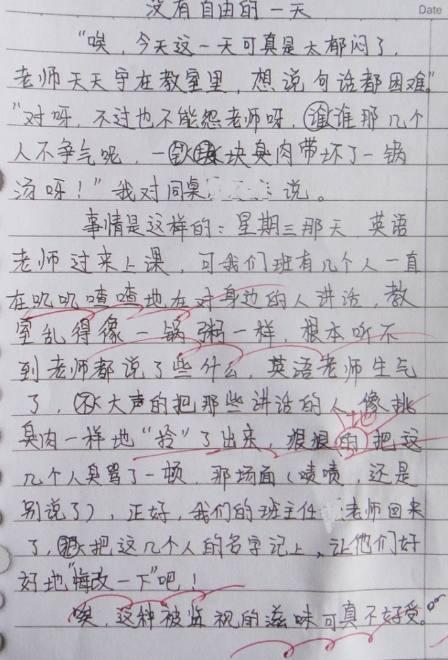 没有自由的一天
Date
“唉，今天这一天可真是太郁闷了，
老师天天守在教室里，想说句话都困难”
“对呀，不过也不能怨老师呀，谁谁那几个
人不争气呢，一块臭肉带坏了一锅
汤呀！”我对同桌说。
事情是这样的：星期三那天 英语
老师过来上课，可我们班有几个人一直
在叽叽喳喳地在对身边的人讲话，教
室乱得像一锅粥一样，根本听不
到老师都说了些什么，英语老师生气
了，大声的把那些讲话的人像挑
臭肉一样地“拎”了出来，狠狠的把这
地
几个人臭骂了一顿，那场面（啧啧，还是
别说了），正好，我们的班主任老师回来
了，把这几个人的名字记上，让他们好
好地“悔改一下”吧！
唉，这种被监视的滋味可真不好受。